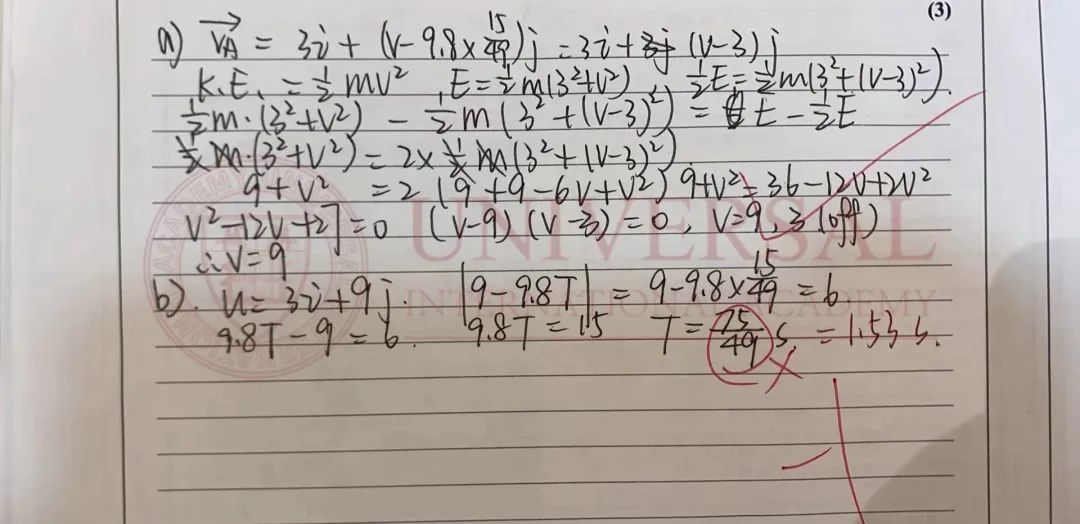 (3)
a) $\overrightarrow{V_A}$ = 3i + (v - 9.8 × $\frac{15}{49}$)j = 3i + (v-3)j
K.E. = $\frac{1}{2}$mv², E = $\frac{1}{2}$m(3²+v²), $\frac{1}{2}$E = $\frac{1}{2}$m(3²+(v-3)²).
$\frac{1}{2}$m·(3²+v²) - $\frac{1}{2}$m(3²+(v-3)²) = E - $\frac{1}{2}$E
$\frac{1}{2}$m·(3²+v²) = 2×$\frac{1}{2}$m(3²+(v-3)²)
9+v² = 2(9+9-6v+v²) 9+v² = 36-12v+2v²
v²-12v+27=0 (v-9)(v-3)=0, v=9, 3 (off)
∴v=9
b). u = 3i+9j. |9-9.8T| = 9-9.8×$\frac{15}{49}$ = 6.
9.8T-9=6. 9.8T=15 T=$\frac{75}{49}$s. = 1.53 s.
UNIVERSAL
INTERNATIONAL ACADEMY